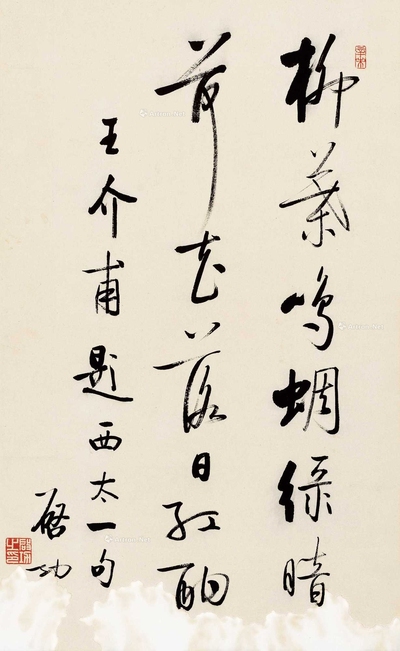 柳葉鳴蜩緑暗
荷花落日紅酣
王介甫題西太一句
啟功